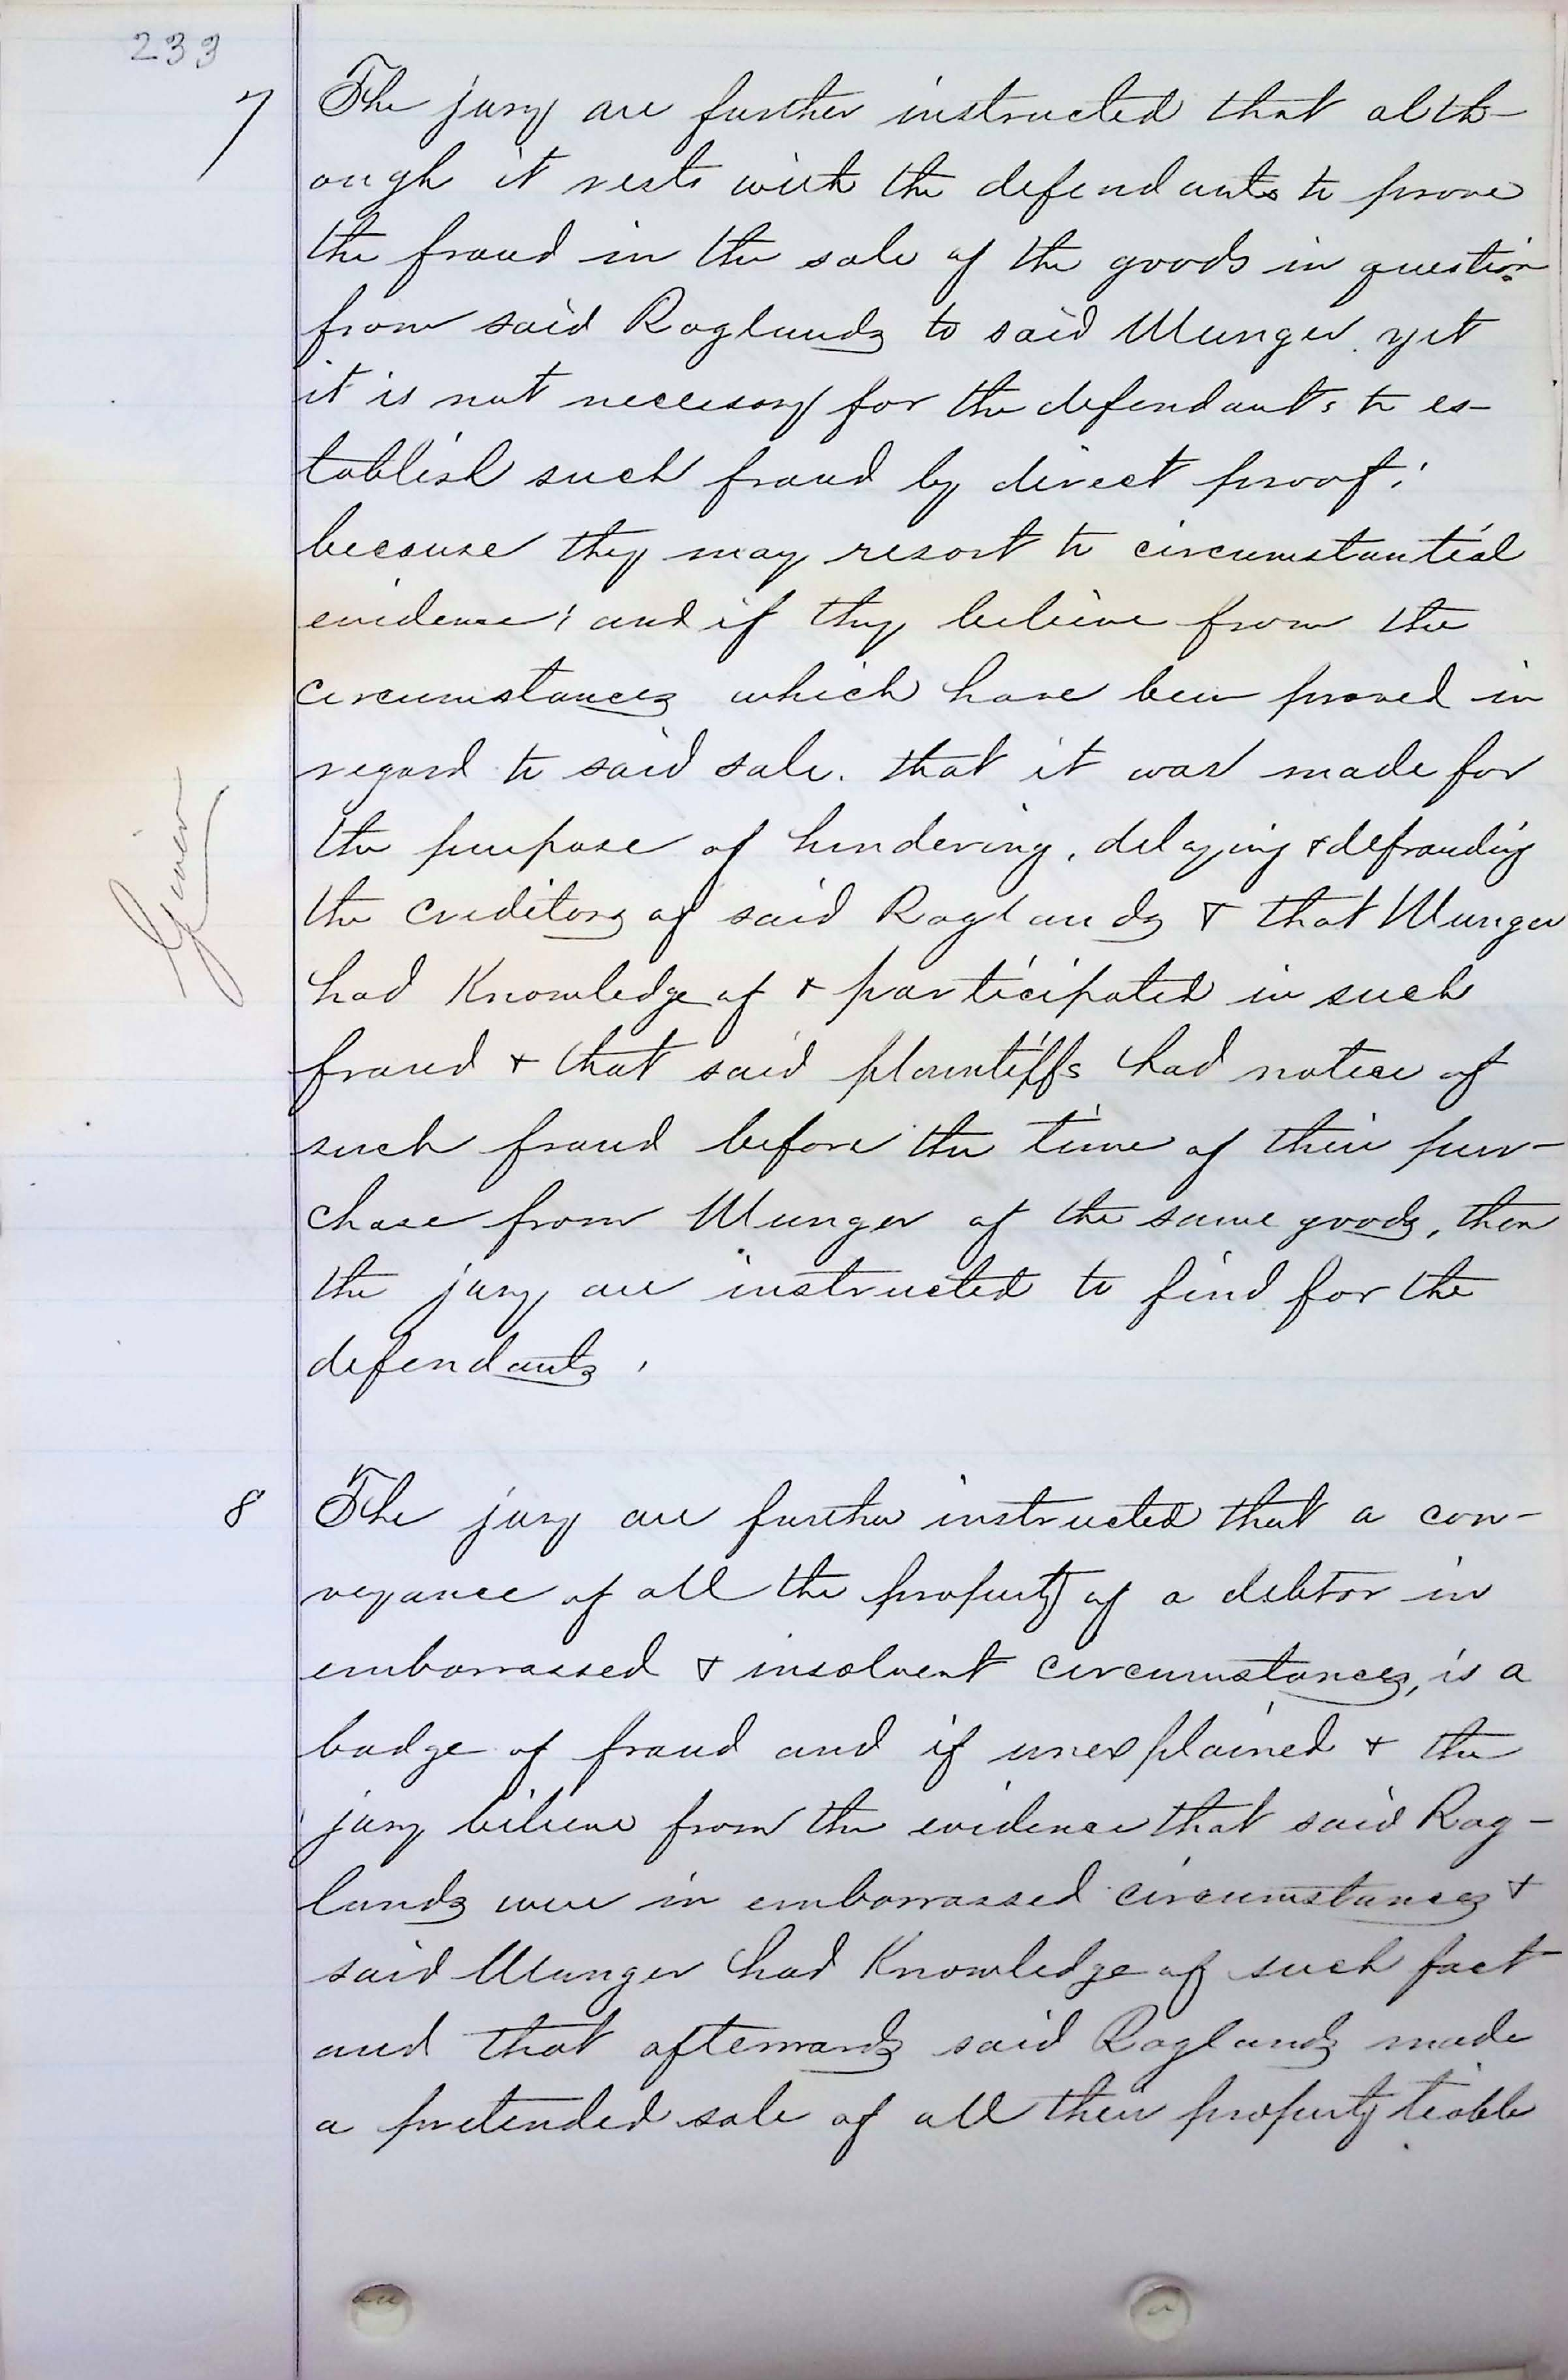 233
7 The jury are further instructed that alth-
ough it rests with the defendants to prove
the fraud in the sale of the goods in question
from said Raglands to said Munger. yet
it is not necessary for the defendants to es-
tablish such fraud by direct proof;
because they may resort to circumstantial
evidence; and if they believe from the
circumstances which have been proved in
regard to said sale. that it was made for
the purpose of hindering, delaying & defrauding
the creditors of said Raglands & that Munger
had Knowledge of & participated in such
fraud & that said plaintiffs had notice of
such fraud before the time of their pur-
chase from Munger of the same goods, then
the jury are instructed to find for the
defendants.
Given
8 The jury are further instructed that a con-
veyance of all the property of a debtor in
embarrassed & insolvent circumstances, is a
badge of fraud and if unexplained & the
jury believe from the evidence that said Rag-
lands were in embarrassed circumstances &
said Munger had Knowledge of such fact
and that afterwards said Raglands made
a pretended sale of all their property liable